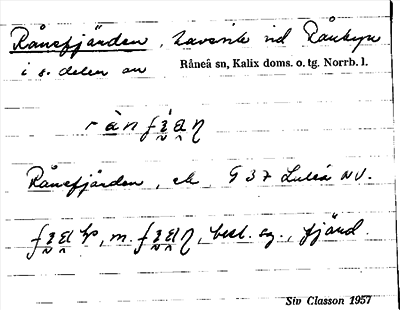 Rånefjärden, havsvik vid Rånbyn
i s. delen av Råneå sn, Kalix doms. o. tg. Norrb. l.
Rånefjärden, ek, G 37 Luleå NV.
m. best. sg., fjärd.
Siv Classon 1957